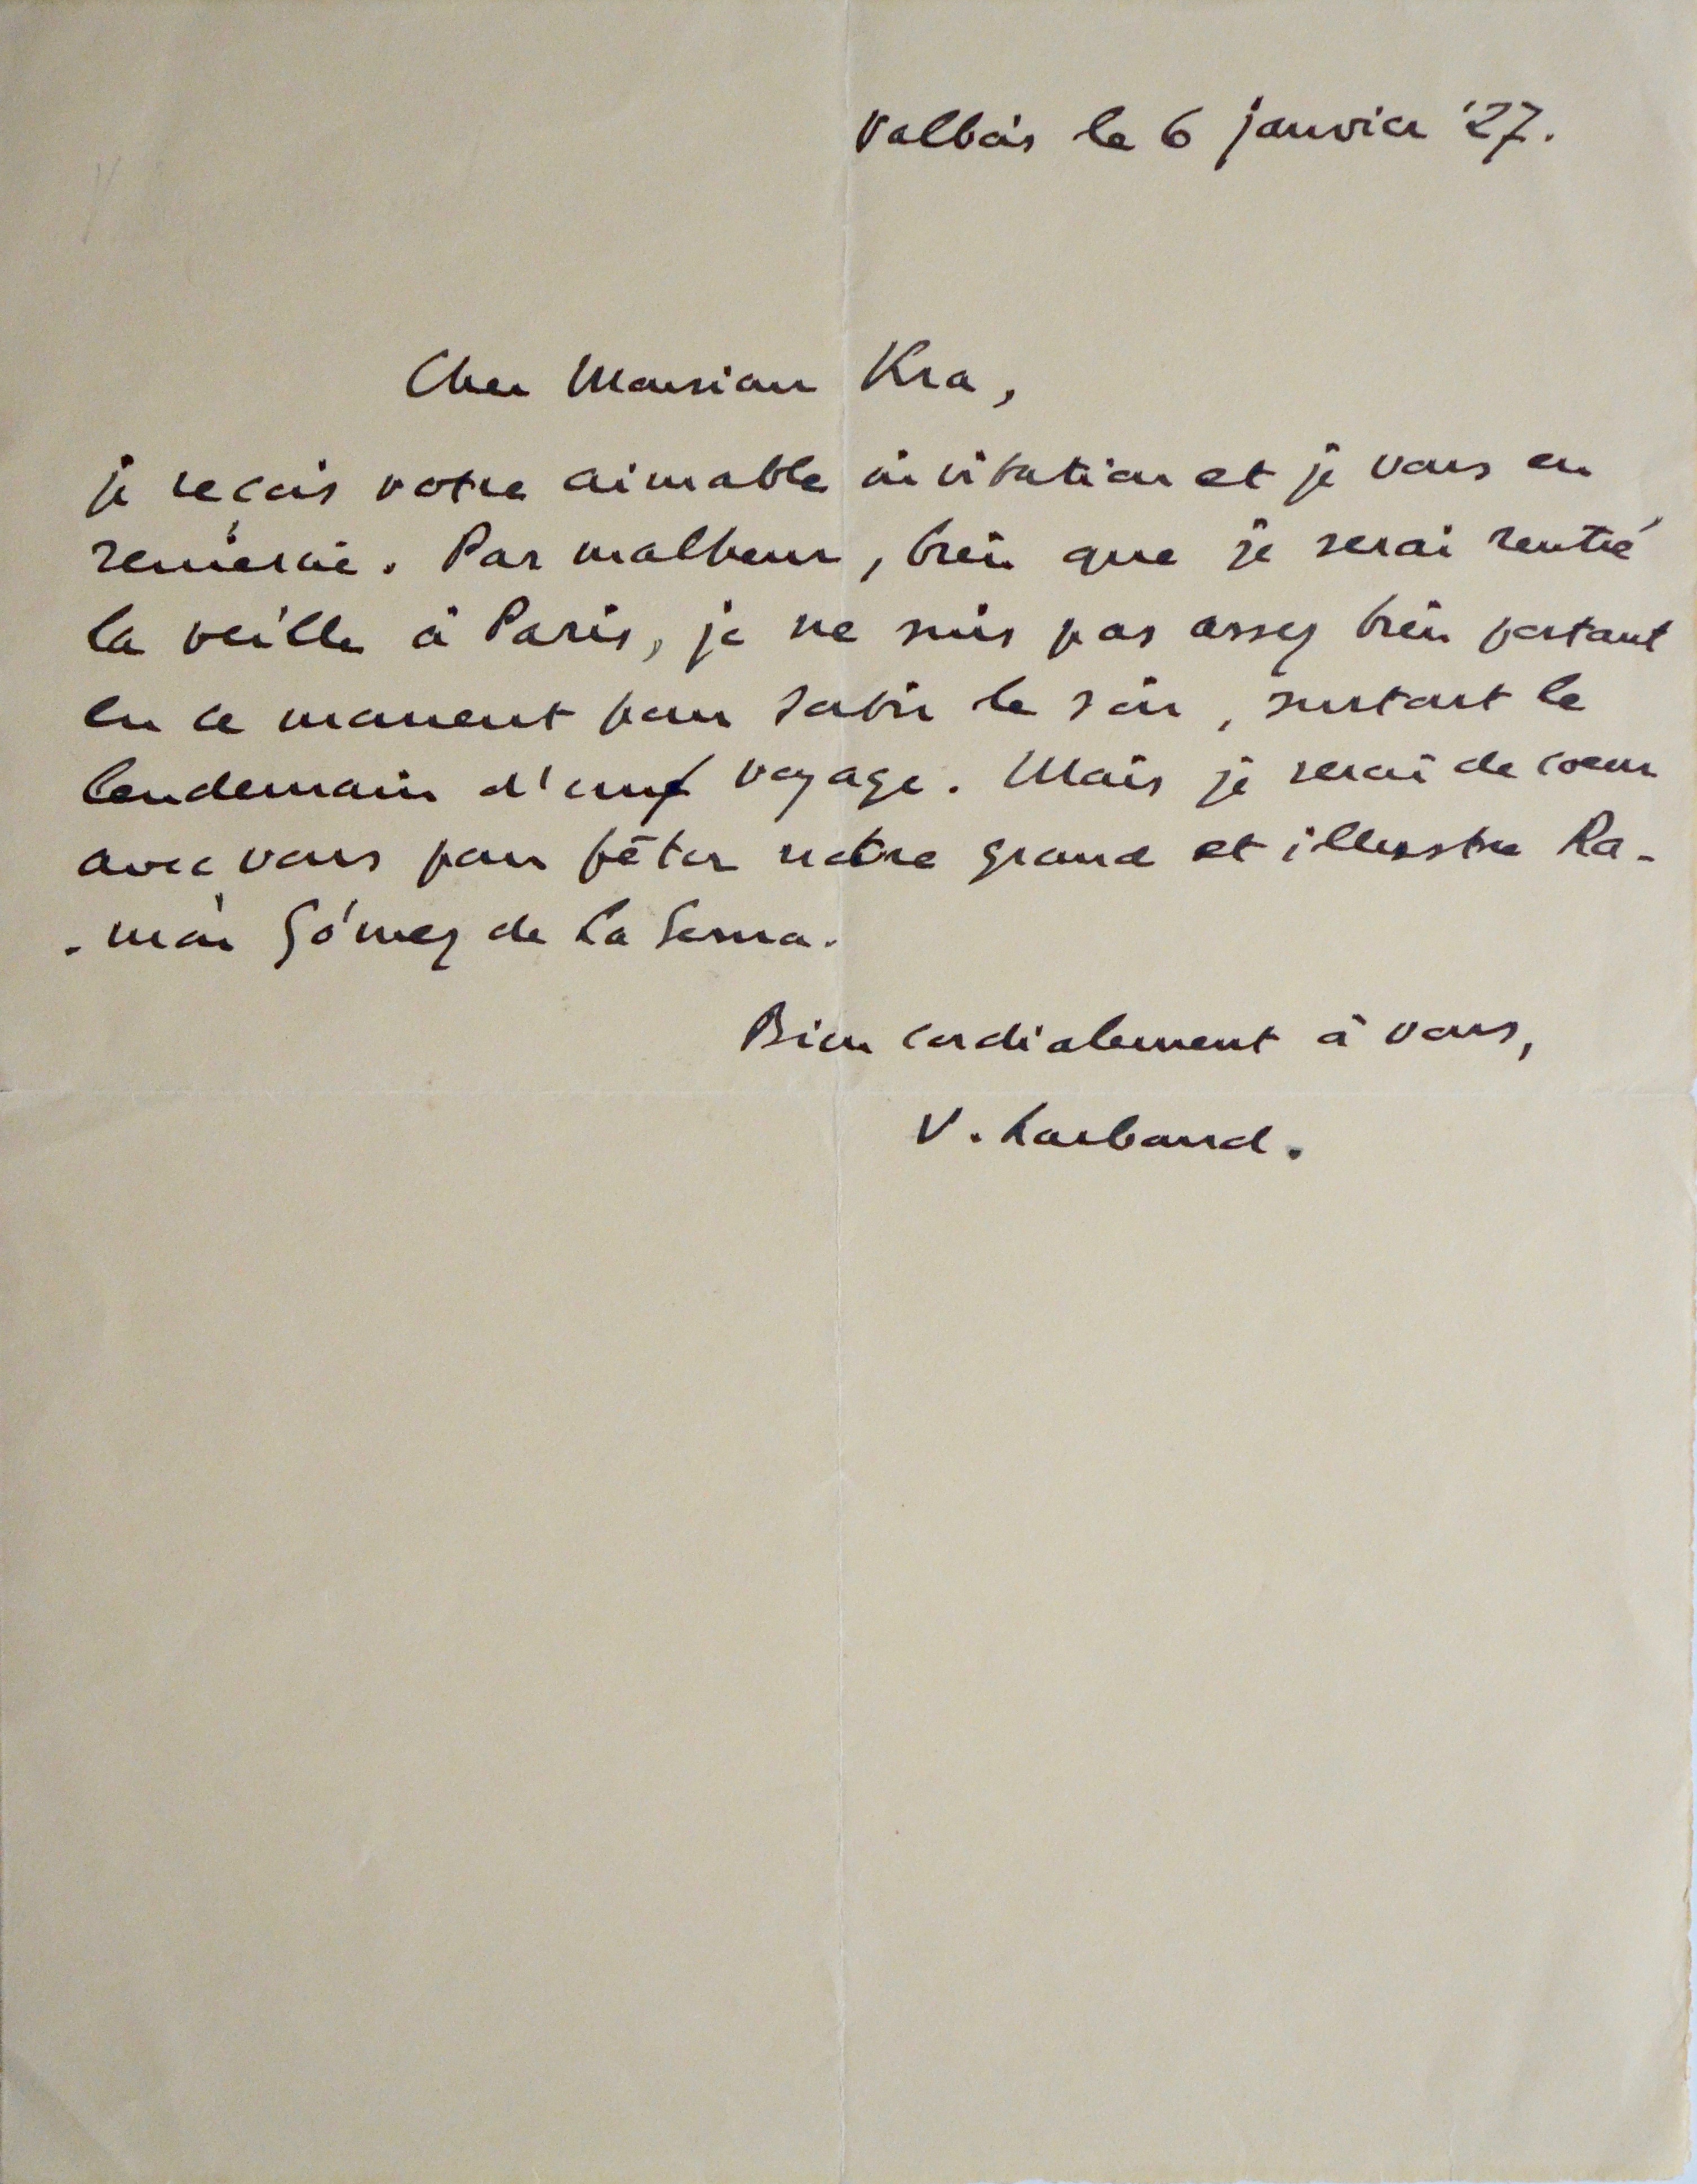 Valbois le 6 janvier '27.
Cher Monsieur Kra,
je reçois votre aimable invitation et je vous en
remercie. Par malheur, bien que je serai rentré
la veille à Paris, je ne suis pas assez bien portant
en ce moment pour sortir le soir, surtout le
lendemain d'un voyage. Mais je serai de coeur
avec vous pour fêter notre grand et illustre Ra-
-món Gómez de La Serna.
Bien cordialement à vous,
V. Larbaud.